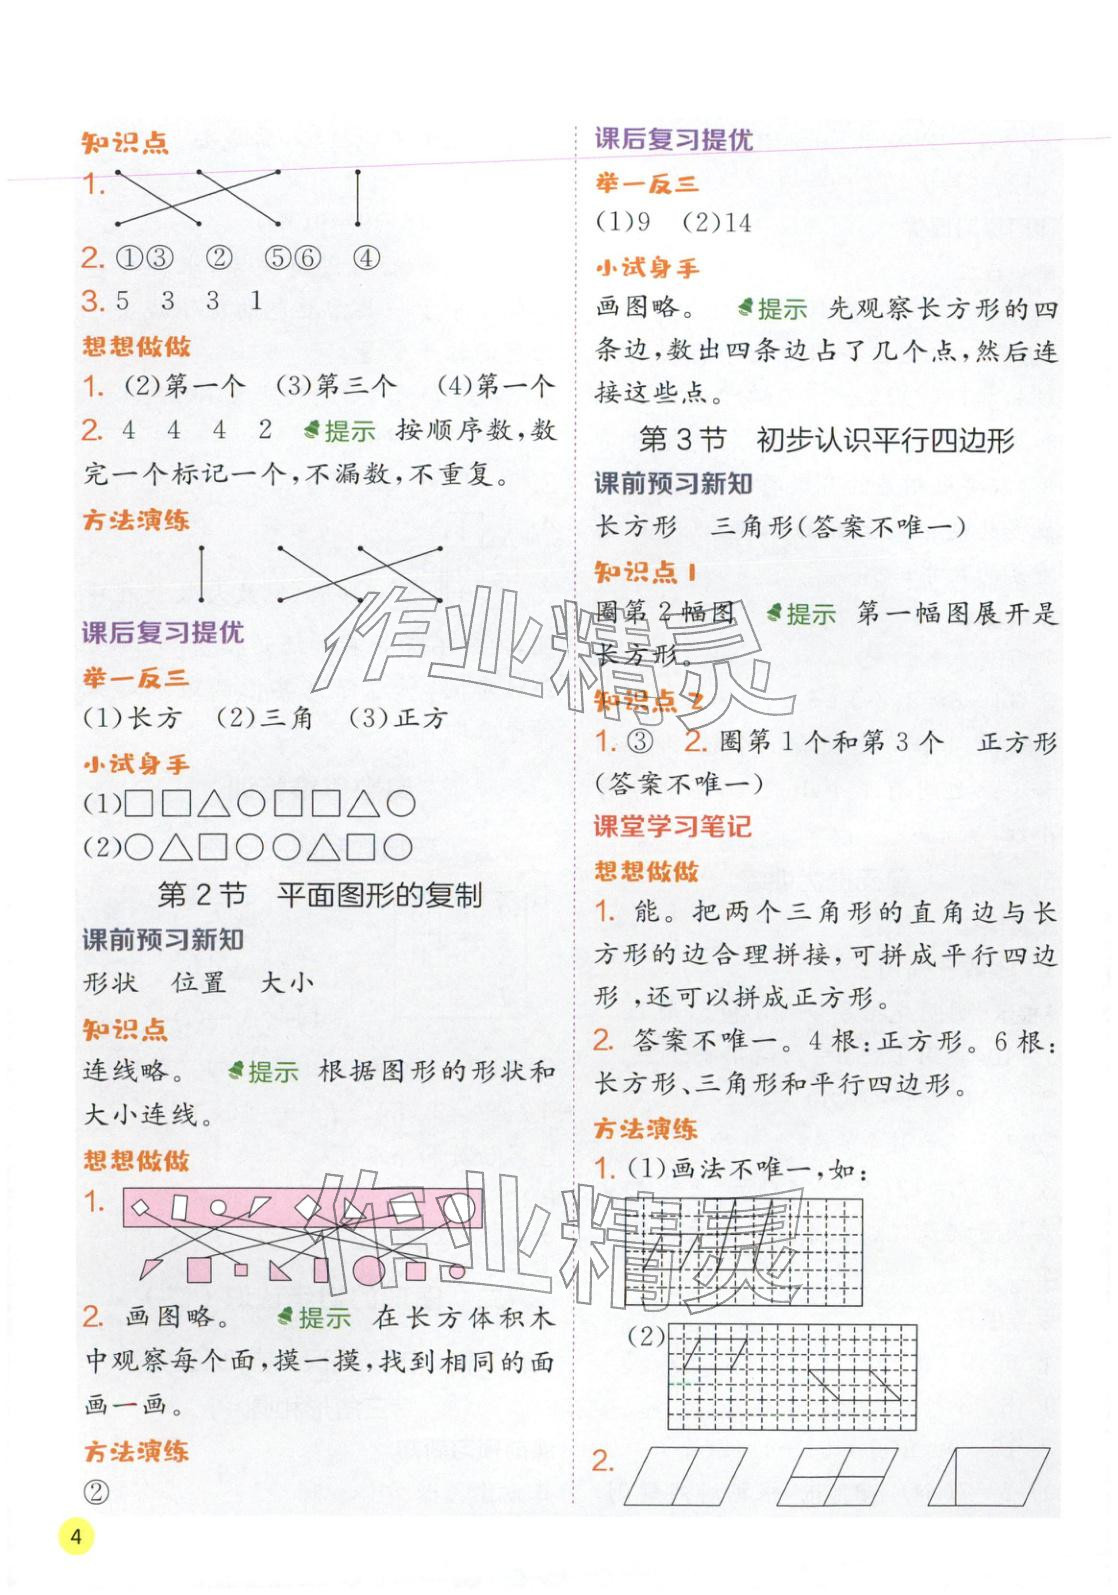 知识点
1.
2. ①③ ② ⑤⑥ ④
3. 5 3 3 1
想想做做
1. (2)第一个 (3)第三个 (4)第一个
2. 4 4 4 2 提示 按顺序数,数
完一个标记一个,不漏数,不重复。
方法演练
课后复习提优
举一反三
(1)长方 (2)三角 (3)正方
小试身手
(1)□□△○□□△○
(2)○△□○○△□○
第2节 平面图形的复制
课前预习新知
形状 位置 大小
知识点
连线略。 提示 根据图形的形状和
大小连线。
想想做做
1.
2. 画图略。 提示 在长方体积木
中观察每个面,摸一摸,找到相同的面
画一画。
方法演练
②
4
课后复习提优
举一反三
(1)9 (2)14
小试身手
画图略。 提示 先观察长方形的四
条边,数出四条边占了几个点,然后连
接这些点。
第3节 初步认识平行四边形
课前预习新知
长方形 三角形(答案不唯一)
知识点1
圈第2幅图 提示 第一幅图展开是
长方形。
知识点2
1. ③ 2. 圈第1个和第3个 正方形
(答案不唯一)
课堂学习笔记
想想做做
1. 能。把两个三角形的直角边与长
方形的边合理拼接,可拼成平行四边
形,还可以拼成正方形。
2. 答案不唯一。4根:正方形。6根:
长方形、三角形和平行四边形。
方法演练
1. (1)画法不唯一,如:
(2)
2.
作业精灵
作业精灵